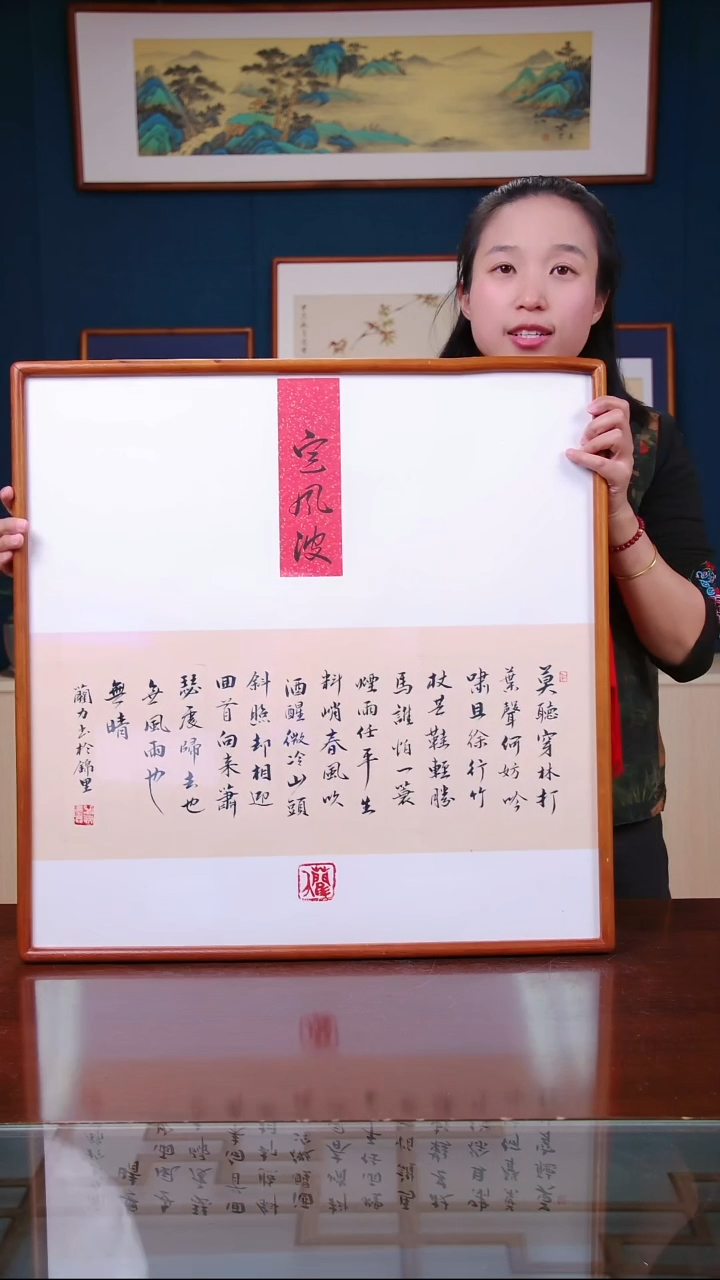 定風波
莫聽穿林打
葉聲何妨吟
嘯且徐行竹
杖芒鞋輕勝
馬誰怕一蓑
煙雨任平生
料峭春風吹
酒醒微冷山頭
斜照却相迎
回首向来蕭
瑟處歸去也
無風雨也
無晴
蘭力书於錦里